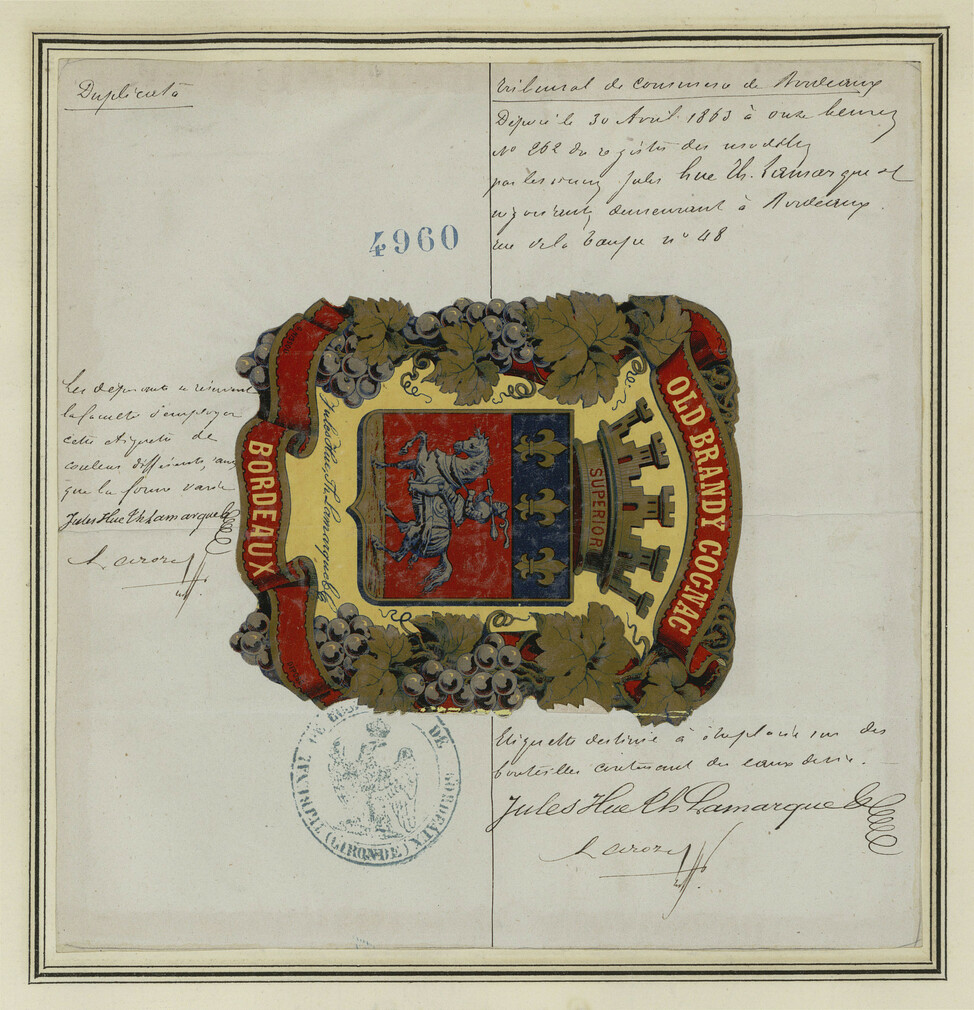 Duplicata
Tribunal de commerce de Bordeaux
Déposé le 30 Avril 1863 à onze heures
No 262 du registre des modèles
par les sieurs Jules Hue Th. Lamarque et
négociants, demeurant à Bordeaux
rue de la Taupe no 48
4960
Les déposants se réservent
la faculté d'employer
cette étiquette de
couleurs différentes, ainsi
que la forme varié
Jules Hue Th Lamarque &
OLD BRANDY COGNAC
SUPERIOR
Jules Hue, Th. Lamarque & C
BORDEAUX
Etiquette destinée à être placée sur des
bouteilles contenant des eaux de vie.
Jules Hue Th Lamarque &
TRIBUNAL DE DE BORDEAUX
(GIRONDE)